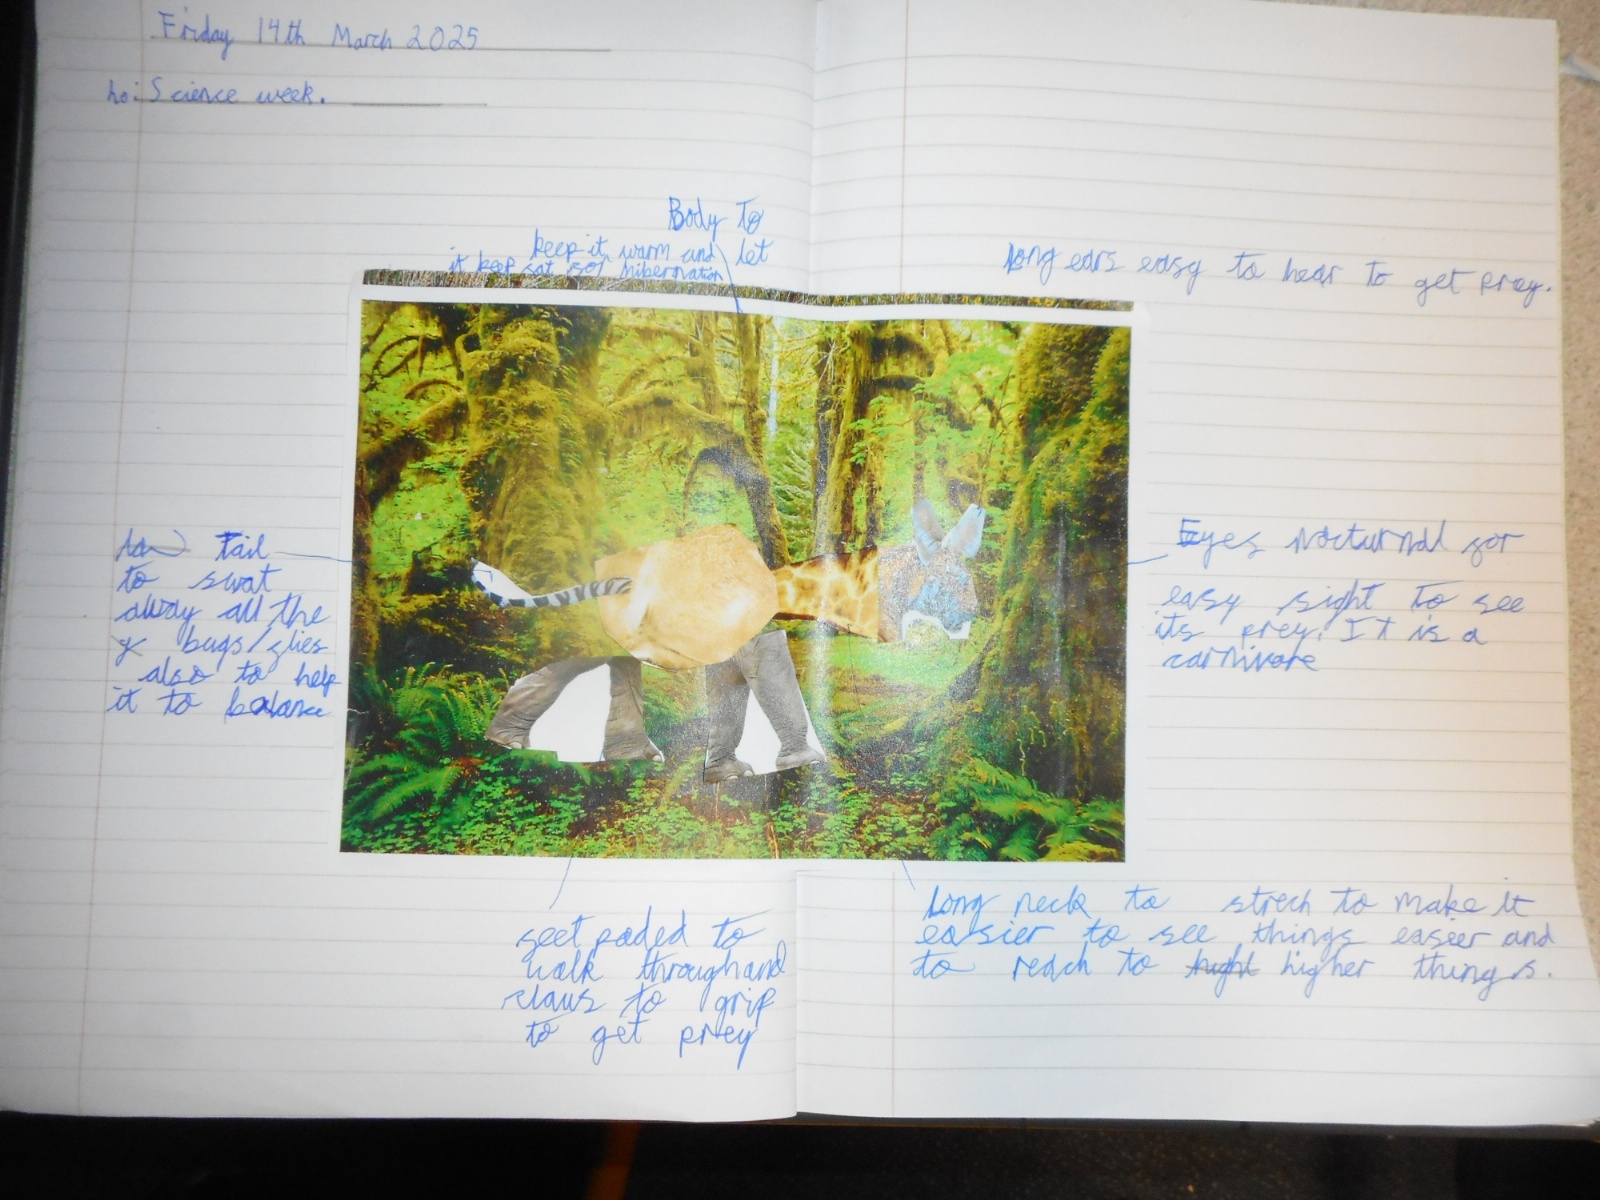 Friday 14th March 2025
lo: Science week.
Body to
keep it warm and let
it keep fat for hibernation
Long ears easy to hear to get prey.
Tail
to swat
alway all the
bugs/flies
also to help
it to balance
Eyes nocturnal for
easy sight to see
its prey. It is a
carnivore
feet paded to
walk through and
claws to grip
to get prey
Long neck to strech to make it
easier to see things easier and
to reach to higher things.